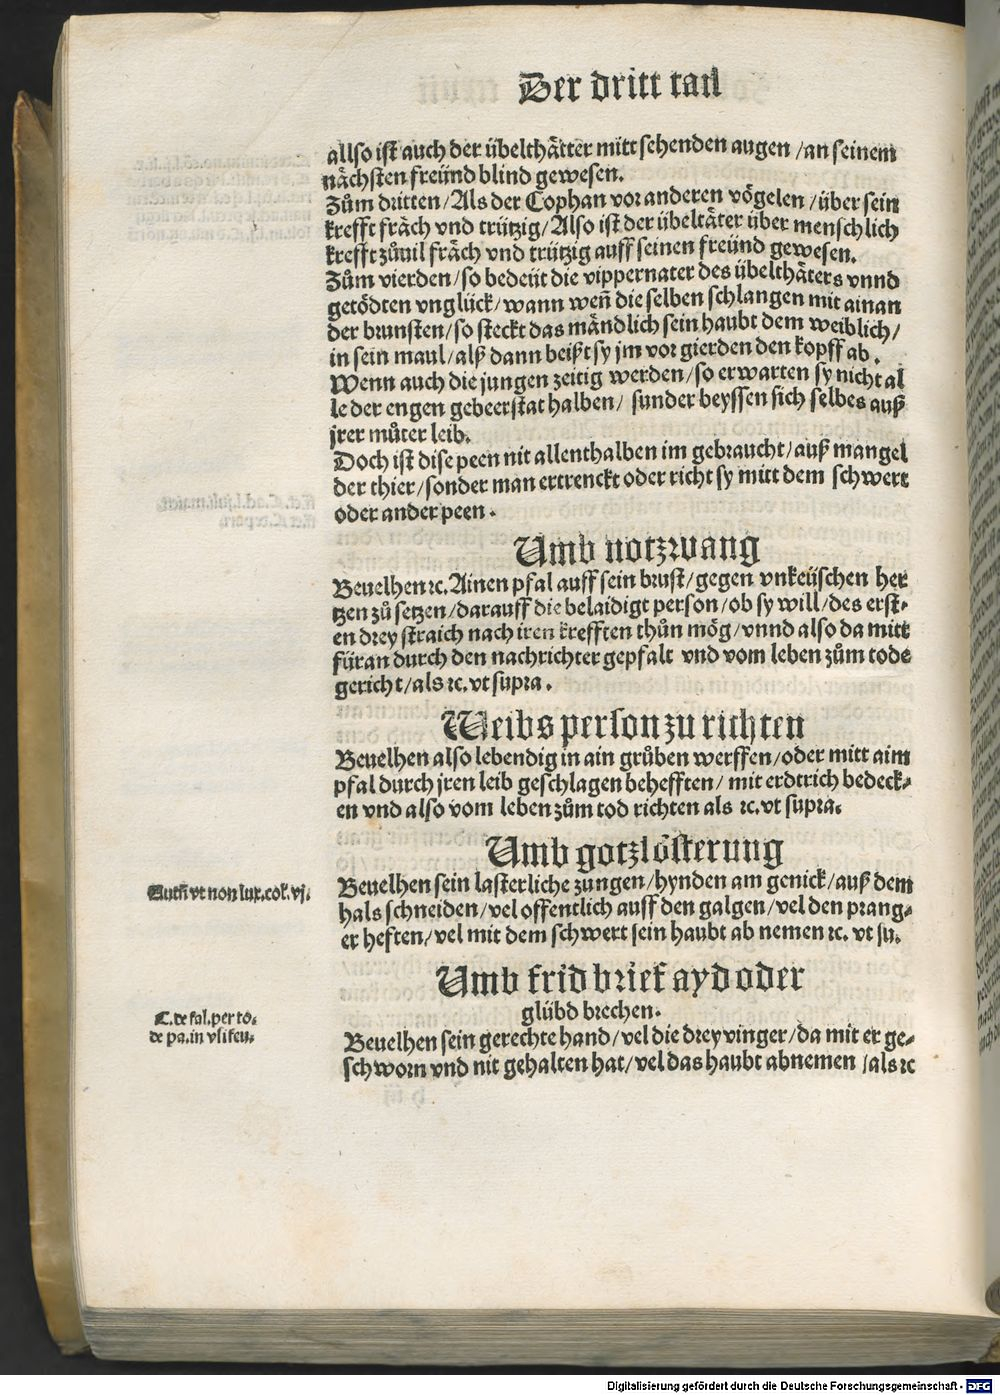 Der dritt tail
allso ist auch der übelthätter mitt sehenden augen / an seinem
nächsten freünd blind gewesen.
Zům dritten / Als der Cophan vor anderen vögelen / über sein
krefft fräch vnd trützig / Also ist der übeltäter über menschlich
krefft zůuil fräch vnd trützig auff seinen freünd gewesen.
Zům vierden / so bedeüt die vippernater des übelthäters vnnd
getödten vnglück / wann weñ die selben schlangen mit ainan
der brunsten / so steckt das mändlich sein haubt dem weiblich /
in sein maul / alß dann beißt sy jm vor gierden den kopff ab.
Wenn auch die jungen zeitig werden / so erwarten sy nicht al
le der engen gebeerstat halben / sunder beyssen sich selbes auß
jrer můter leib.
Doch ist dise peen nit allenthalben im gebraucht / auß mangel
der thier / sonder man ertrenckt oder richt sy mitt dem schwert
oder ander peen.
Umb notzwang
Beuelhen ꝛc. Ainen pfal auff sein brust / gegen vnkeüschen her
tzen zů setzen / darauff die belaidigt person / ob sy will / des erst⸗
en drey straich nach iren krefften thůn mög / vnnd also da mitt
füran durch den nachrichter gepfalt vnd vom leben zům tode
gericht / als ꝛc. vt supra.
Weibs person zu richten
Beuelhen also lebendig in ain grůben werffen / oder mitt aim
pfal durch jren leib geschlagen behefften / mit erdtrich bedeck⸗
en vnd also vom leben zům tod richten als ꝛc. vt supra.
Umb gotzlösterung
Autñ vt non lux. col. vj.
Beuelhen sein lasterliche zungen / hynden am genick / auß dem
hals schneiden / vel offentlich auff den galgen / vel den prang⸗
er heften / vel mit dem schwert sein haubt ab nemen ꝛc. vt su.
Umb frid brief ayd oder
glübd brechen.
C. de fal. per to⸗
de pa. in vsi feu.
Beuelhen sein gerechte hand / vel die drey vinger / da mit er ge⸗
schworn vnd nit gehalten hat / vel das haubt abnemen / als ꝛc
Digitalisierung gefördert durch die Deutsche Forschungsgemeinschaft - DFG